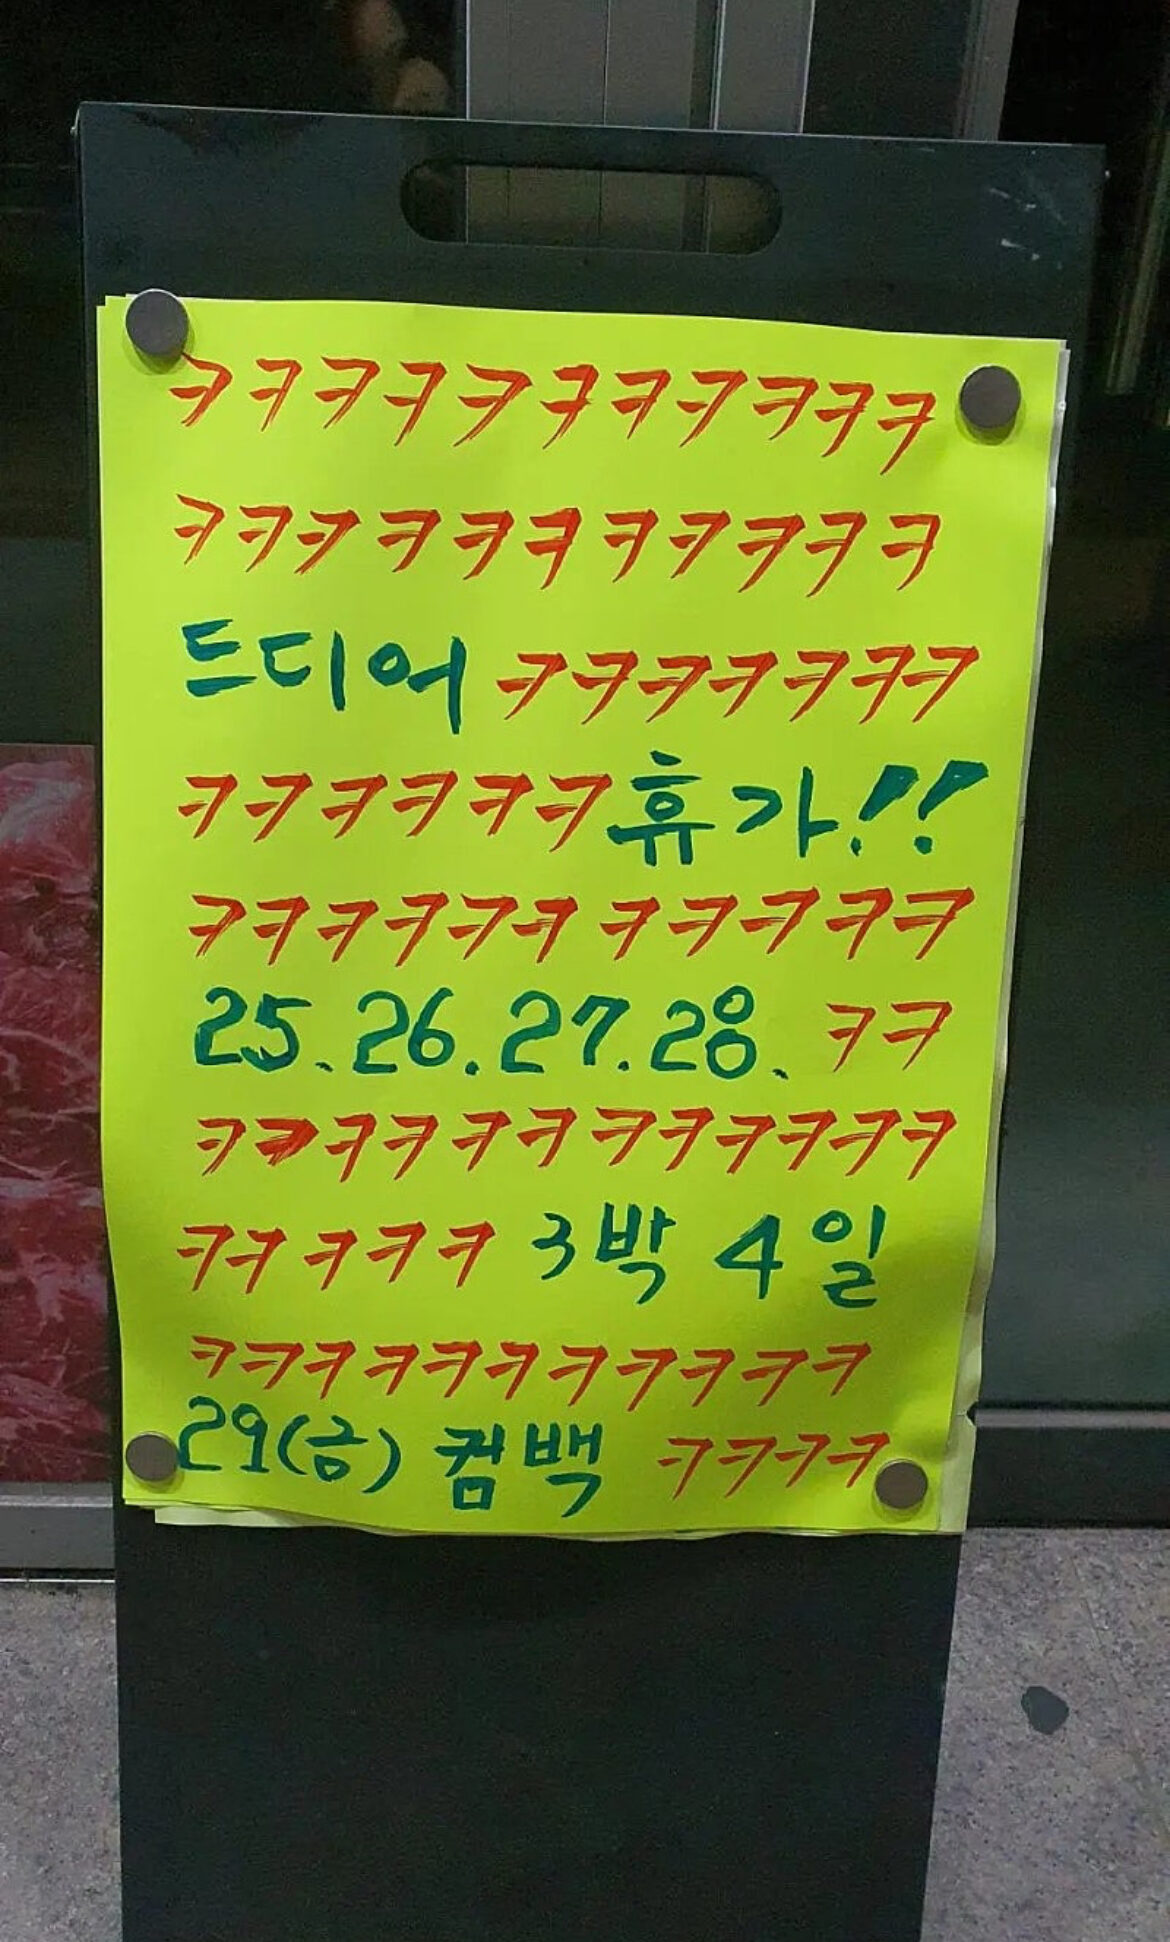 ㅋㅋㅋㅋㅋㅋㅋㅋㅋㅋㅋ
ㅋㅋㅋㅋㅋㅋㅋㅋㅋㅋㅋ
드디어 ㅋㅋㅋㅋㅋㅋㅋ
ㅋㅋㅋㅋㅋㅋ휴가!!
ㅋㅋㅋㅋㅋㅋ ㅋㅋㅋㅋㅋ
25. 26. 27. 28. ㅋㅋ
ㅋㅋㅋㅋㅋㅋㅋㅋㅋㅋㅋㅋ
ㅋㅋㅋㅋㅋ 3박 4일
ㅋㅋㅋㅋㅋㅋㅋㅋㅋㅋㅋ
29(금) 컴백 ㅋㅋㅋㅋ